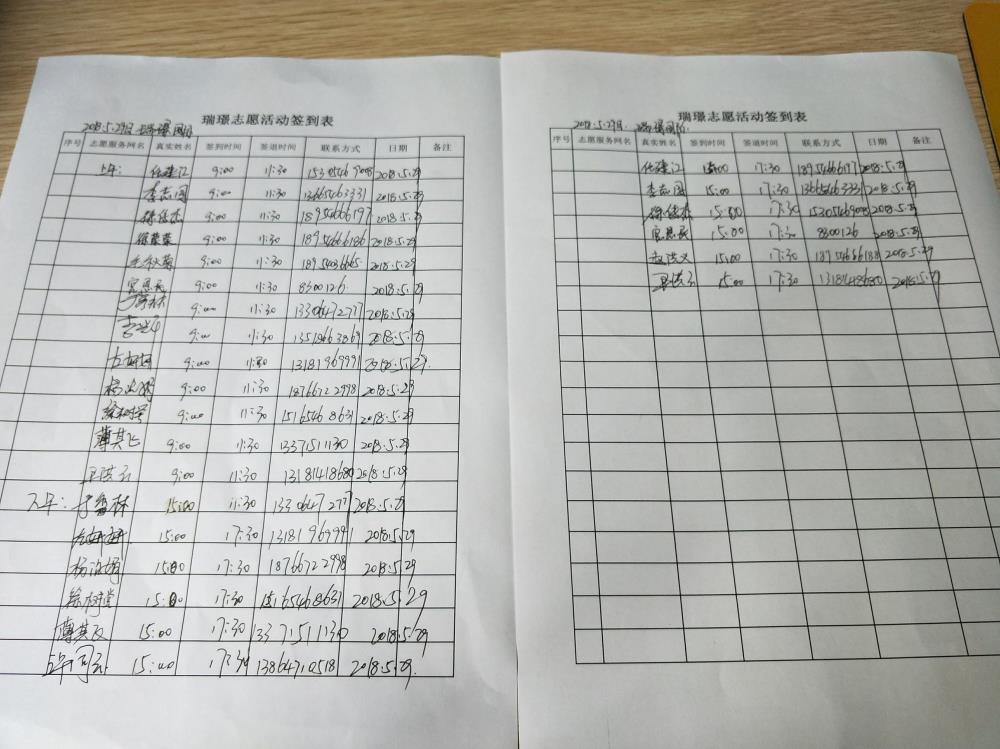 瑞璟志愿活动签到表
2018.5.29日 瑞璟国际
序号 志愿服务网名 真实姓名 签到时间 签退时间 联系方式 日期 备注
上午: 任建江 9:00 11:30 15305469098 2018.5.29
李志国 9:00 11:30 13665463331 2018.5.29
徐佳杰 9:00 11:30 18954666197 2018.5.29
9:00 11:30 18954666186 2018.5.29
9:00 11:30 2018.5.29
宫恩民 9:00 11:30 8300126 2018.5.29
于鲁林 9:00 11:30 13306472777 2018.5.29
9:00 11:30 13518663869 2018.5.29
9:00 11:30 13181969991 2018.5.29
9:00 11:30 18766722998 2018.5.29
徐树堂 9:00 11:30 15165468631 2018.5.29
薄其飞 9:00 11:30 13371511130 2018.5.29
9:00 11:30 13181418680 2018.5.29
下午: 于鲁林 15:00 11:30 2018.5.29
15:00 17:30 13181969991 2018.5.29
15:00 17:30 18766722998 2018.5.29
徐树堂 15:00 17:30 15165468631 2018.5.29
15:00 17:30 13371511130 2018.5.29
15:00 17:30 13864710518 2018.5.29
瑞璟志愿活动签到表
2018.5.29日 瑞璟国际
序号 志愿服务网名 真实姓名 签到时间 签退时间 联系方式 日期 备注
任建江 15:00 17:30 18954666197 2018.5.29
李志国 15:00 17:30 13665463331 2018.5.29
徐佳杰 15:00 17:30 15305469098 2018.5.29
宫恩民 15:00 17:30 8300126 2018.5.29
赵洪义 15:00 17:30 18954666188 2018.5.29
15:00 17:30 13181418680 2018.5.29